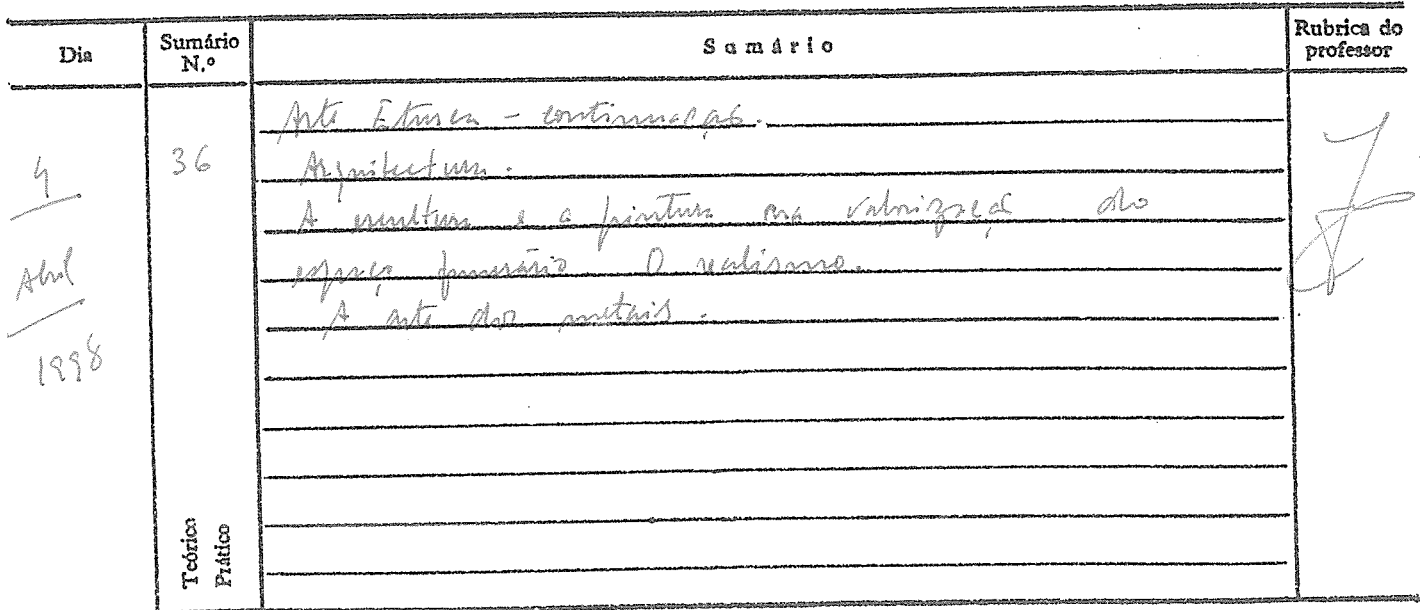 Dia
Sumário N.º
Sumário
Rubrica do professor
4
Abril
1998
36
Arte Etrusca - continuação.
Arquitectura.
A escultura e a pintura na valorização do
espaço funerário. O realismo.
A arte dos metais.
Teórico
Prático